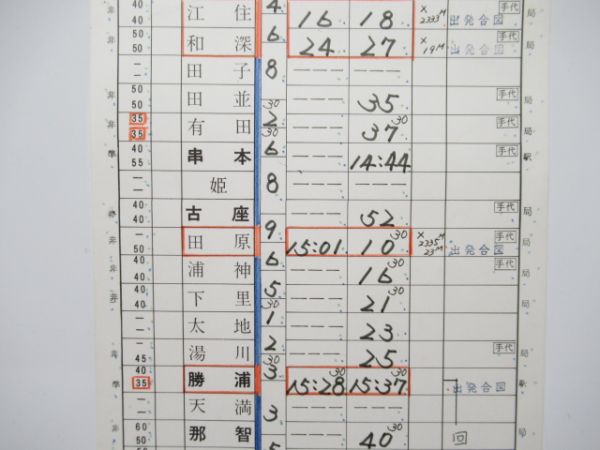 40 江住 4 16 18 × 2333M 出発合図 手代 局
40 50 和深 6 24 27 × 19M 出発合図 局
— — 田子 8 — — —
50 50 田並 30 — — — 35 手代 局
35 35 有田 2 30 — — — 37 30 手代 局
40 55 串本 6 — — — 14:44 駅
— — 姫 8 — — —
古座 — — — 52 手代 局
40 50 田原 9 15:01 10 30 × 2335M 23M 出発合図 手代 局
浦神 6 — — — 16 30 手代 局
下里 5 30 — — — 21 30 手代 局
太地 1 — — — 23
45 湯川 2 30 — — — 25 手代 局
40 35 勝浦 3 15:28 30 15:37 30 出発合図 駅
— — 天満 3 — — —
60 50 那智 — — — 40 30 回 局
5